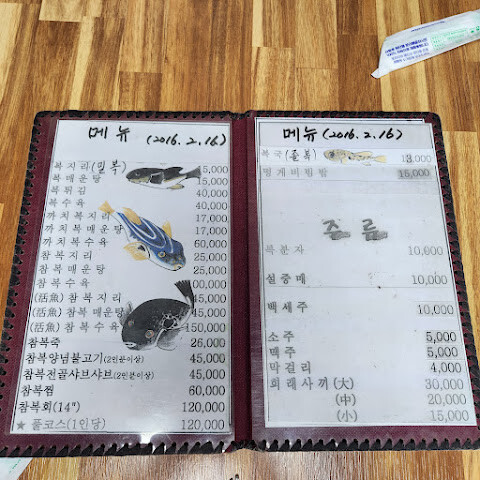 메뉴 (2016.2.16)
복지리(밀복) 15,000
복매운탕 15,000
복튀김 40,000
복수육 40,000
까치복지리 17,000
까치복매운탕 17,000
까치복수육 60,000
참복지리 25,000
참복매운탕 25,000
참복수육 00,000
(活魚)참복지리 45,000
(活魚)참복매운탕 45,000
(活魚)참복수육 150,000
참복죽 26,000
참복양념불고기(2인분이상) 45,000
참복전골샤브샤브(2인분이상) 45,000
참복찜 60,000
참복회(14") 120,000
★ 풀코스(1인당) 120,000
메뉴 (2016.2.16)
복국(졸복) 13,000
멍게비빔밥 15,000
주 류
복분자 10,000
설중매 10,000
백세주 10,000
소주 5,000
맥주 5,000
막걸리 4,000
회래사끼(大) 30,000
(中) 20,000
(小) 15,000